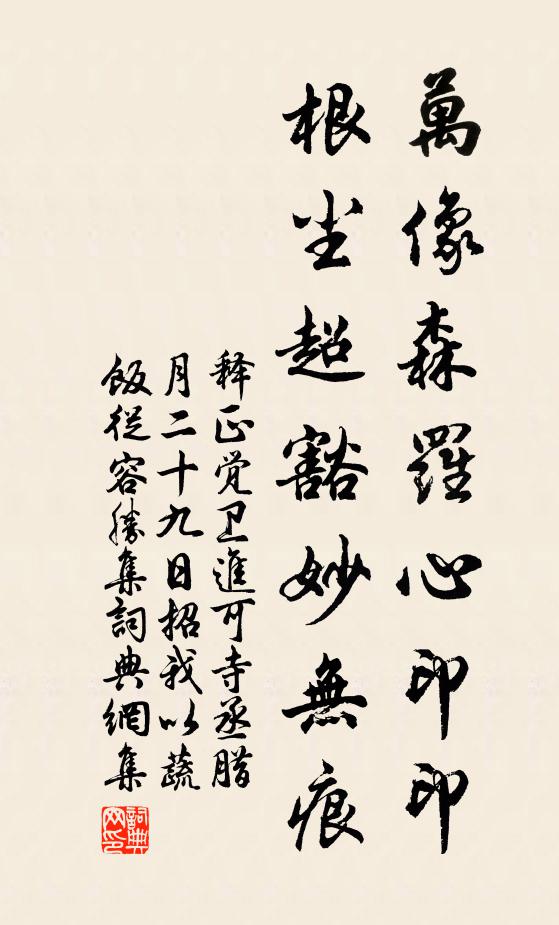 萬像森羅心印印
根尘超豁妙無痕
释正觉卫進可寺丞腊
月二十九日招我以蔬
飯從容勝集詞典網集
詞典
网印